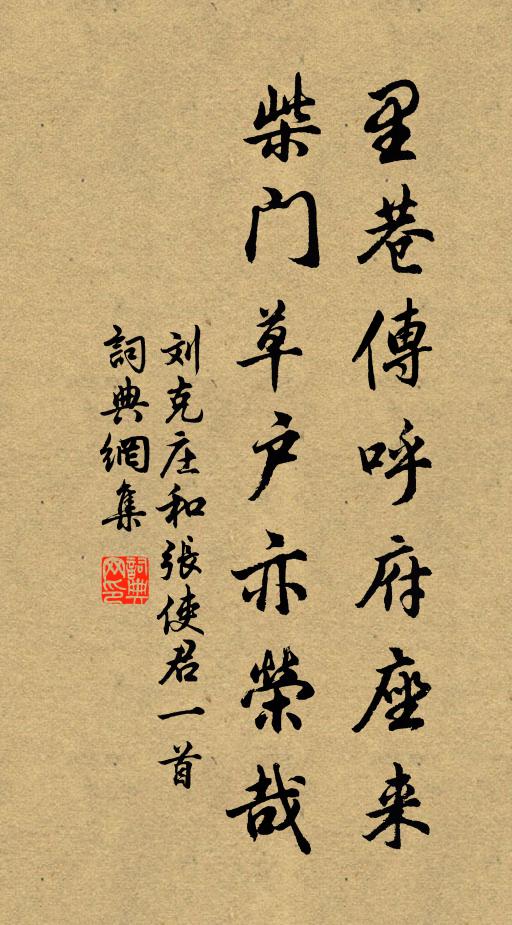 里巷傳呼府座来
柴门草户亦榮哉
刘克庄和張使君一首
詞典網集
詞典网印